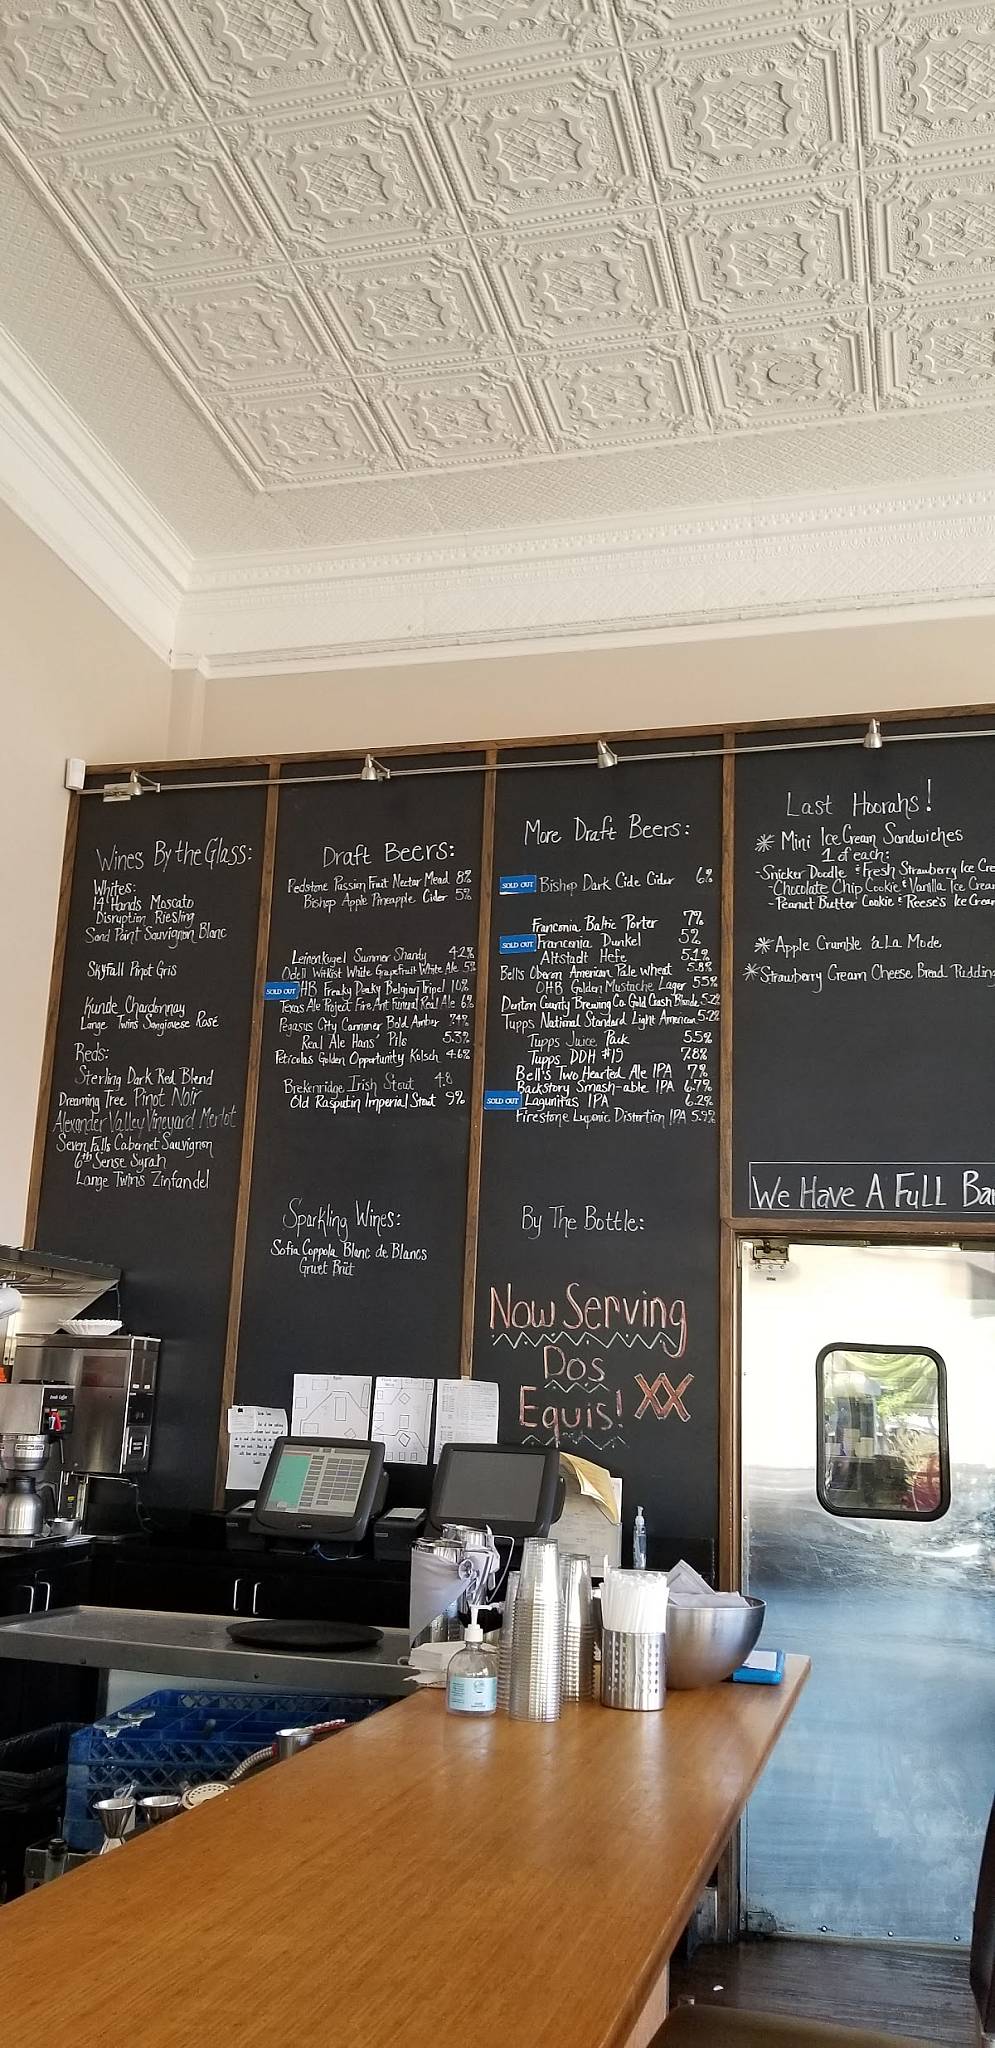 Wines By the Glass:
Whites:
14 Hands Moscato
Disruption Riesling
Sand Point Sauvignon Blanc
Skyfall Pinot Gris
Kunde Chardonnay
Lange Twins Sangiovese Rosé
Reds:
Sterling Dark Red Blend
Dreaming Tree Pinot Noir
Alexander Valley Vineyard Merlot
Seven Falls Cabernet Sauvignon
6th Sense Syrah
Lange Twins Zinfandel
Draft Beers:
Redstone Passion Fruit Nectar Mead 8%
Bishop Apple Pineapple Cider 5%
Leinenkugel Summer Shandy 4.2%
Odell Witkist White Grapefruit White Ale 5%
SOLD OUT
OHB Freaky Deaky Belgian Tripel 10%
Texas Ale Project Fire Ant Funeral Real Ale 6%
Pegasus City Cannoneer Bold Amber 7.4%
Real Ale Hans' Pils 5.3%
Peticolas Golden Opportunity Kolsch 4.6%
Brekenridge Irish Stout 4.8
Old Rasputin Imperial Stout 9%
Sparkling Wines:
Sofia Coppola Blanc de Blancs
Gruet Brüt
More Draft Beers:
SOLD OUT Bishop Dark Cide Cider 6%
Franconia Baltic Porter 7%
SOLD OUT Franconia Dunkel 5%
Altstadt Hefe 5.1%
Bells Oberon American Pale Wheat 5.8%
OHB Golden Mustache Lager 5.5%
Denton County Brewing Co. Gold Crash Blonde 5.2%
Tupps National Standard Light American 5.2%
Tupps Juice Pack 5.5%
Tupps DDH #19 7.8%
Bell's Two Hearted Ale IPA 7%
Backstory Smash-able IPA 6.7%
SOLD OUT Lagunitas IPA 6.2%
Firestone Luponic Distortion IPA 5.9%
By The Bottle:
Now Serving
Dos
Equis! XX
Last Hoorahs!
Mini Ice Cream Sandwiches
1 of each:
-Snicker Doodle & Fresh Strawberry Ice Cre
-Chocolate Chip Cookie & Vanilla Ice Cream
-Peanut Butter Cookie & Reese's Ice Cream
Apple Crumble 'a La Mode
Strawberry Cream Cheese Bread Pudding
We Have A Full Bar